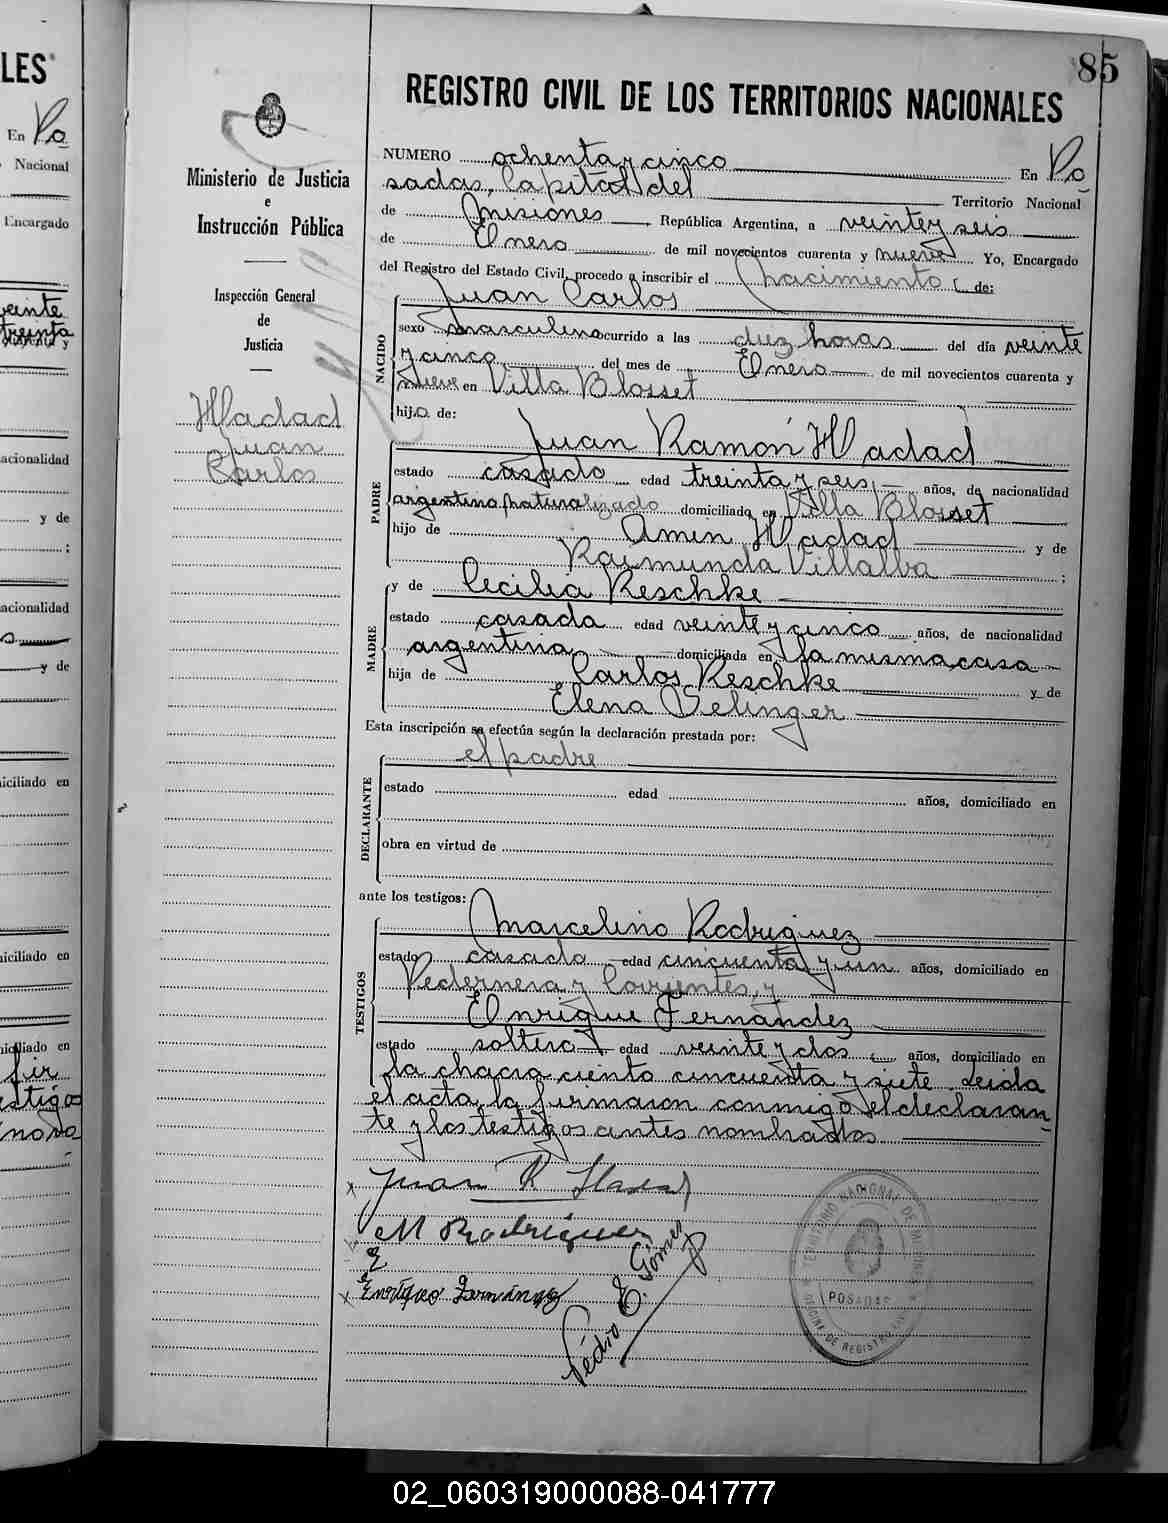 LES
En Po
Nacional
Encargado
veinte
treinta
y
acionalidad
y de
;
acionalidad
y de
iciliado en
iciliado en
iciliado en
fir
estigos
nova
85
Ministerio de Justicia
e
Instrucción Pública
Inspección General
de
Justicia
Hadad
Juan
Carlos
REGISTRO CIVIL DE LOS TERRITORIOS NACIONALES
NUMERO ochenta y cinco En Po
sadas, Capital del Territorio Nacional
de Misiones República Argentina, a veinte y seis
de Enero de mil novecientos cuarenta y nueve Yo, Encargado
del Registro del Estado Civil, procedo a inscribir el nacimiento de:
NACIDO
Juan Carlos
sexo masculino ocurrido a las diez horas del día veinte
y cinco del mes de Enero de mil novecientos cuarenta y
nueve en Villa Blosset
hijo de:
PADRE
Juan Ramón Hadad
estado casado edad treinta y seis años, de nacionalidad
argentino naturalizado domiciliado en Villa Blosset
hijo de Amin Hadad y de
Raimunda Villalba ;
MADRE
y de Cecilia Reschke
estado casada edad veinte y cinco años, de nacionalidad
argentina domiciliada en la misma casa
hija de Carlos Reschke y de
Elena Velinger
Esta inscripción se efectúa según la declaración prestada por:
DECLARANTE
el padre
estado edad años, domiciliado en
obra en virtud de
ante los testigos:
TESTIGOS
Marcelino Rodriguez
estado casado edad cincuenta y un años, domiciliado en
Pedernera y Corrientes, y
Enrique Fernandez
estado soltero edad veinte y dos años, domiciliado en
la chacra ciento cincuenta y siete. Leida
el acta, la firmaron conmigo el declaran
te y los testigos antes nombrados
x Juan R Hadad
M Rodriguez
x Enrique Fernández
Pedro E. Gómez
TERRITORIO NACIONAL DE MISIONES
POSADAS
OFICINA DE REGISTRO CIVIL
02_060319000088-041777